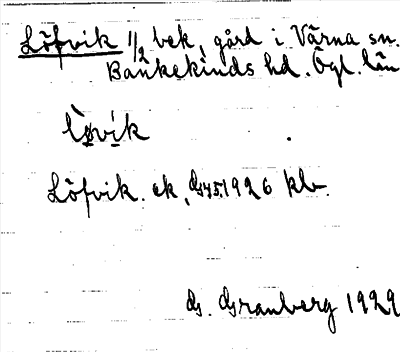 Löfvik 1/2 bek, gård i Värna sn.
Bankekinds hd. Ögl. län
Löfvik. ek, 1926 kbr.
G. Granberg 1929